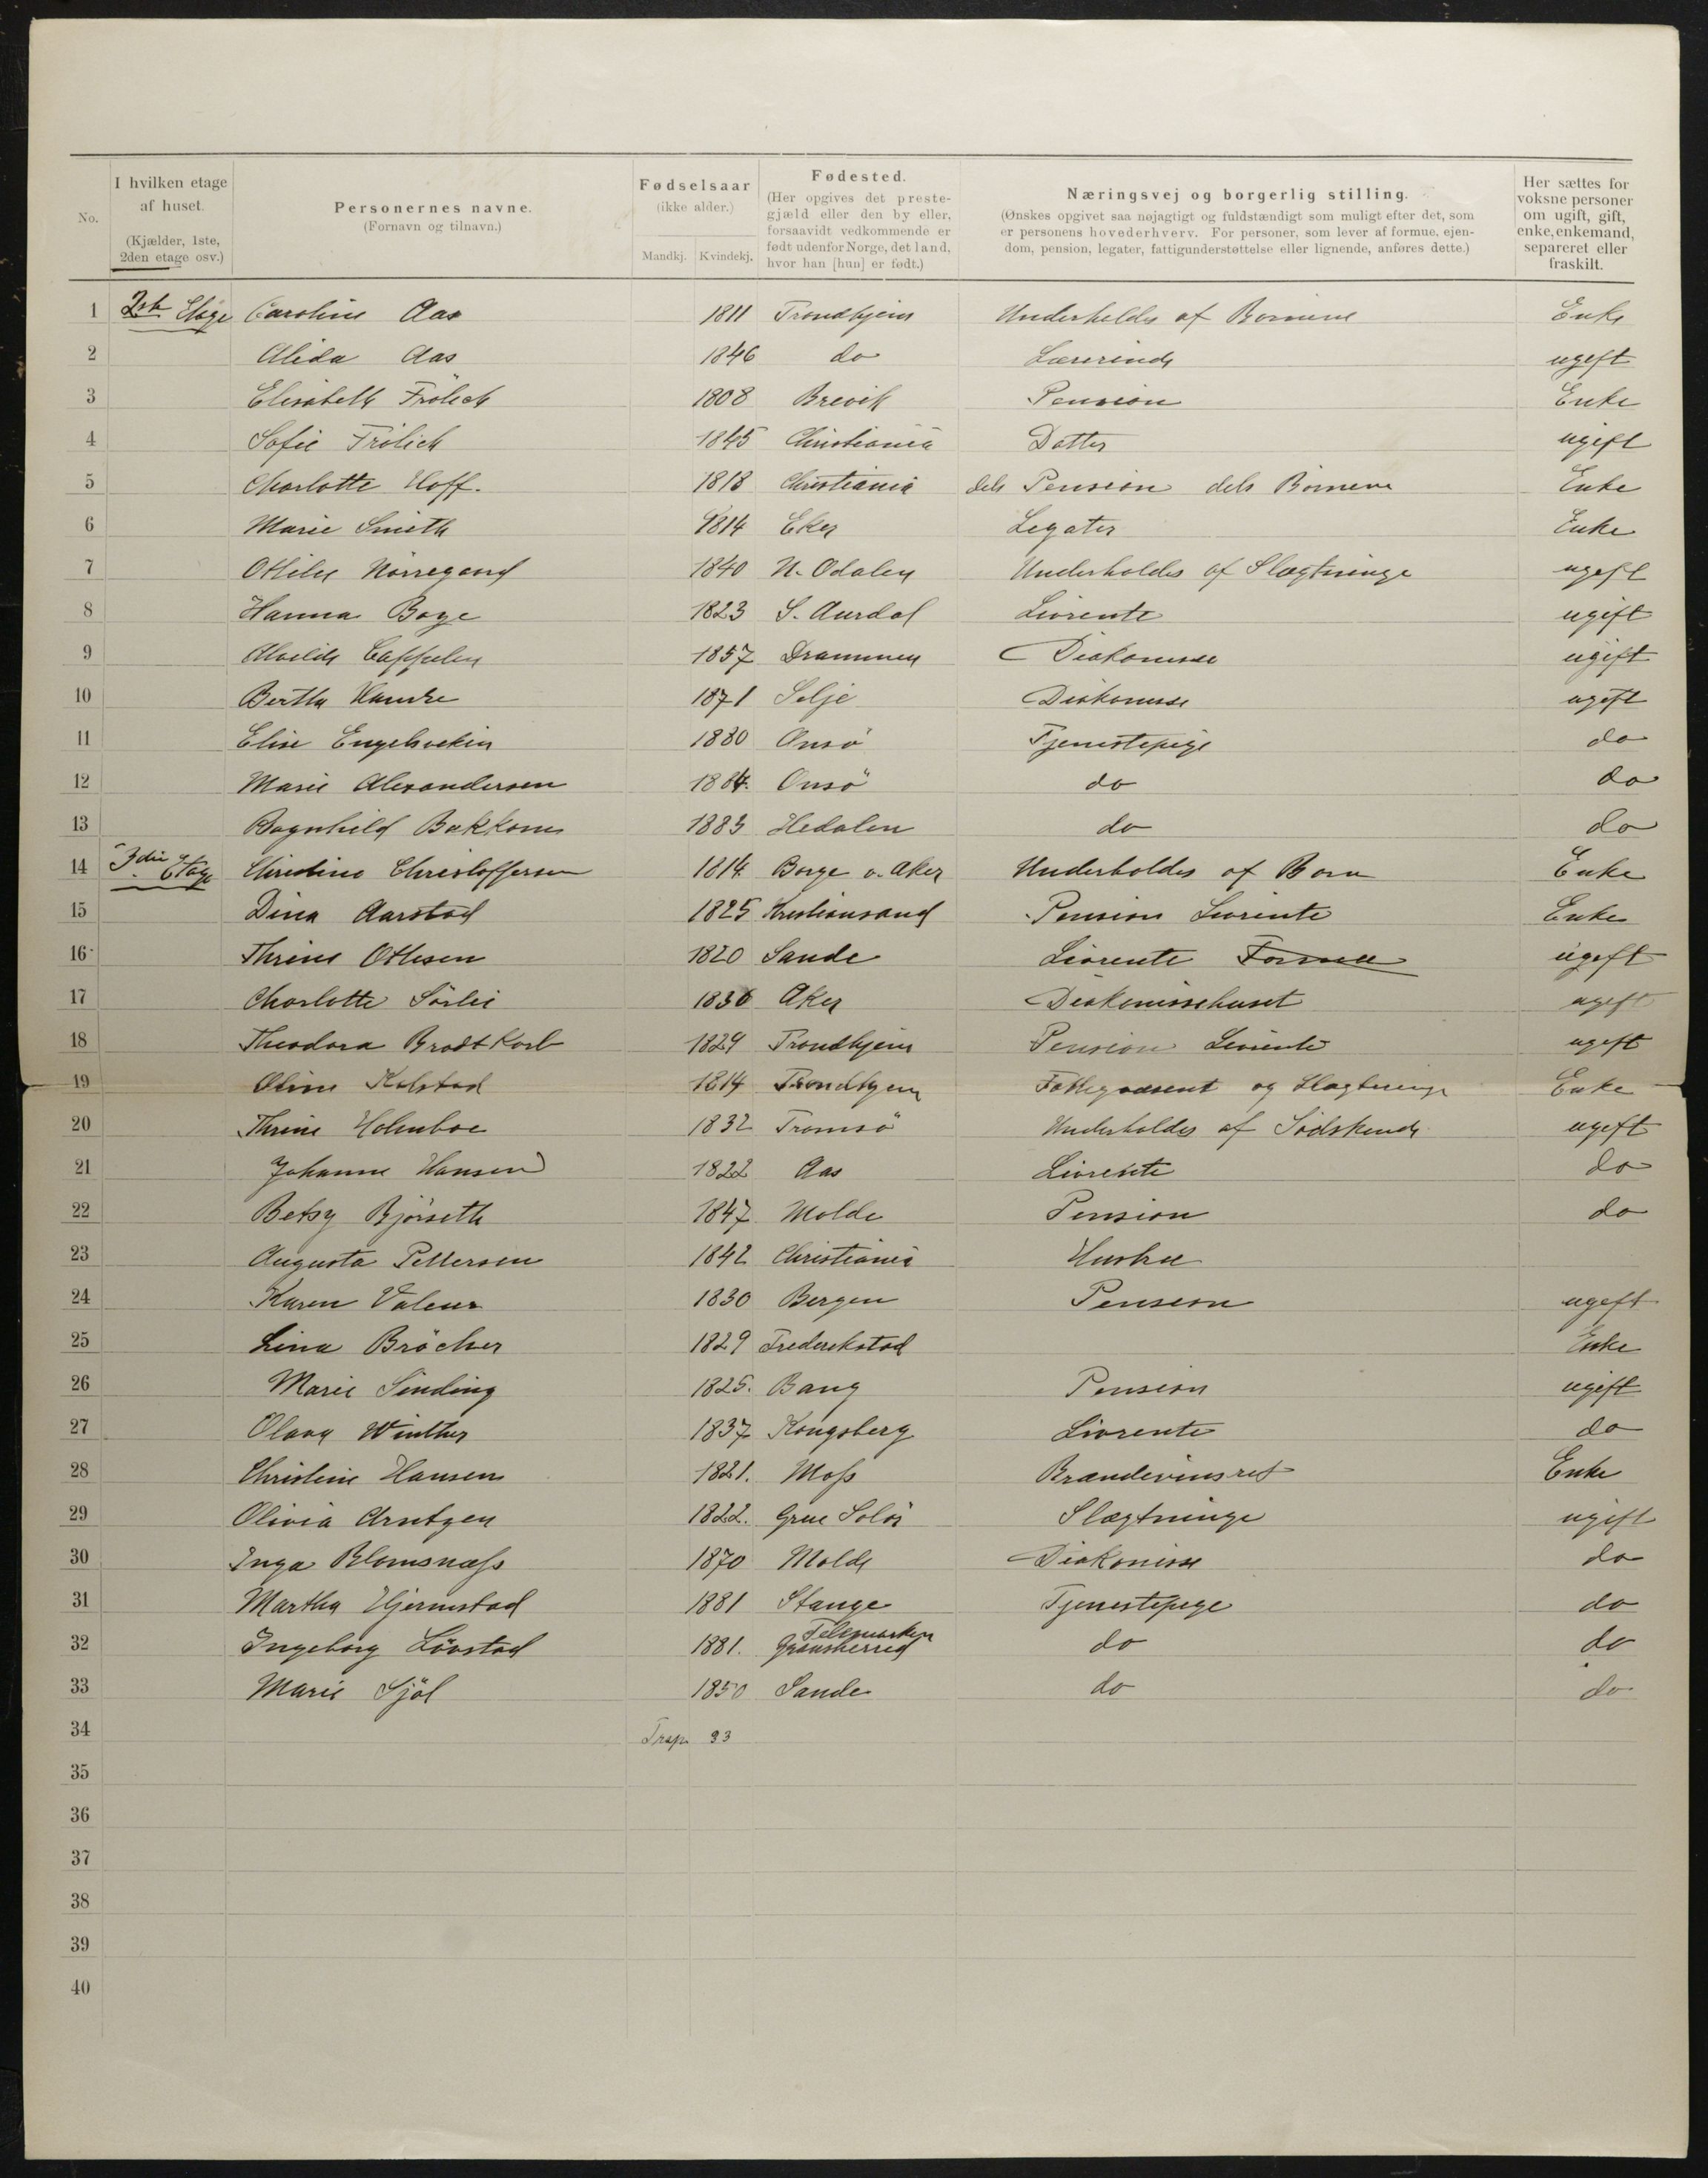 No. | I hvilken etage af huset. (Kjælder, 1ste, 2den etage osv.) | Personernes navne. (Fornavn og tilnavn.) | Fødselsaar (ikke alder.) Mandkj. Kvindekj. | Fødested. (Her opgives det prestegjæld eller den by eller, forsaavidt vedkommende er født udenfor Norge, det land, hvor han [hun] er født.) | Næringsvej og borgerlig stilling. (Ønskes opgivet saa nøjagtigt og fuldstændigt som muligt efter det, som er personens hovederhverv. For personer, som lever af formue, ejendom, pension, legater, fattigunderstøttelse eller lignende, anføres dette.) | Her sættes for voksne personer om ugift, gift, enke, enkemand, separeret eller fraskilt.
1 Etage Caroline Aas 1811 Trondhjem Underholdes af Børnene Enke
2 Alida Aas 1846 do Lærerinde ugift
3 Elisabeth Frölich 1808 Brevik Pension Enke
4 Sofie Frölich 1845 Christiania Datter ugift
5 Charlotte Hoff. 1818 Christiania dels Pension dels Börnene Enke
6 Marie Smith 1814 Eker Legater Enke
7 Othilie Nörregaard 1840 N. Odalen Underholdes af Slægtninge ugift
8 Hanna Boye 1823 S. Aurdal Livrente ugift
9 Alvilde Cappelen 1857 Drammen Diakonisse ugift
10 Bertha Hamre 1871 Selje Diakonisse ugift
11 Elise Engelsvekin 1880 Onsö Tjenestepige do
12 Marie Alexandersen 1884. Onsö do do
13 Ragnhild Bakkom 1883 Hedalen do do
14 3die Etage Christine Christoffersen 1814 Borge v. Aker Underholdes af Børn Enke
15 Dina Aarstad 1825 Kristiansand Pension Livrente Enke
16 Thrine Ottesen 1820 Sande Livrente Formue ugift
17 Charlotte Sörlie 1836 Aker Diakonissehuset ugift
18 Theodora Brodtkorb 1829 Trondhjem Pension Livrente ugift
19 Oline Kolstad 1814 Trondhjem Fattigvæsent og Slægtninge Enke
20 Thrine Holmboe 1832 Tromsö Underholdes af Södskende ugift
21 Johanne Hansen 1822 Aas Livrente do
22 Betsy Björseth 1847 Molde Pension do
23 Augusta Pettersen 1842 Christiania Hustru
24 Karen Valeur 1830 Bergen Pension ugift
25 Lina Bröcher 1829 Frederikstad Enke
26 Marie Sinding 1825. Bang Pension ugift
27 Olava Winther 1837 Kongsberg Livrente do
28 Christine Hansen 1821. Moss Brændevinsret Enke
29 Olivia Arntzen 1822. Grue Solör Slægtninge ugift
30 Inga Blomsnæss 1870 Molde Diakonisse do
31 Martha Hjermstad 1881 Stange Tjenestepige do
32 Ingeborg Lövstad 1881. Telemarken Gransherred do do
33 Marie Sjöl 1850 Sande do do
34 33
35
36
37
38
39
40